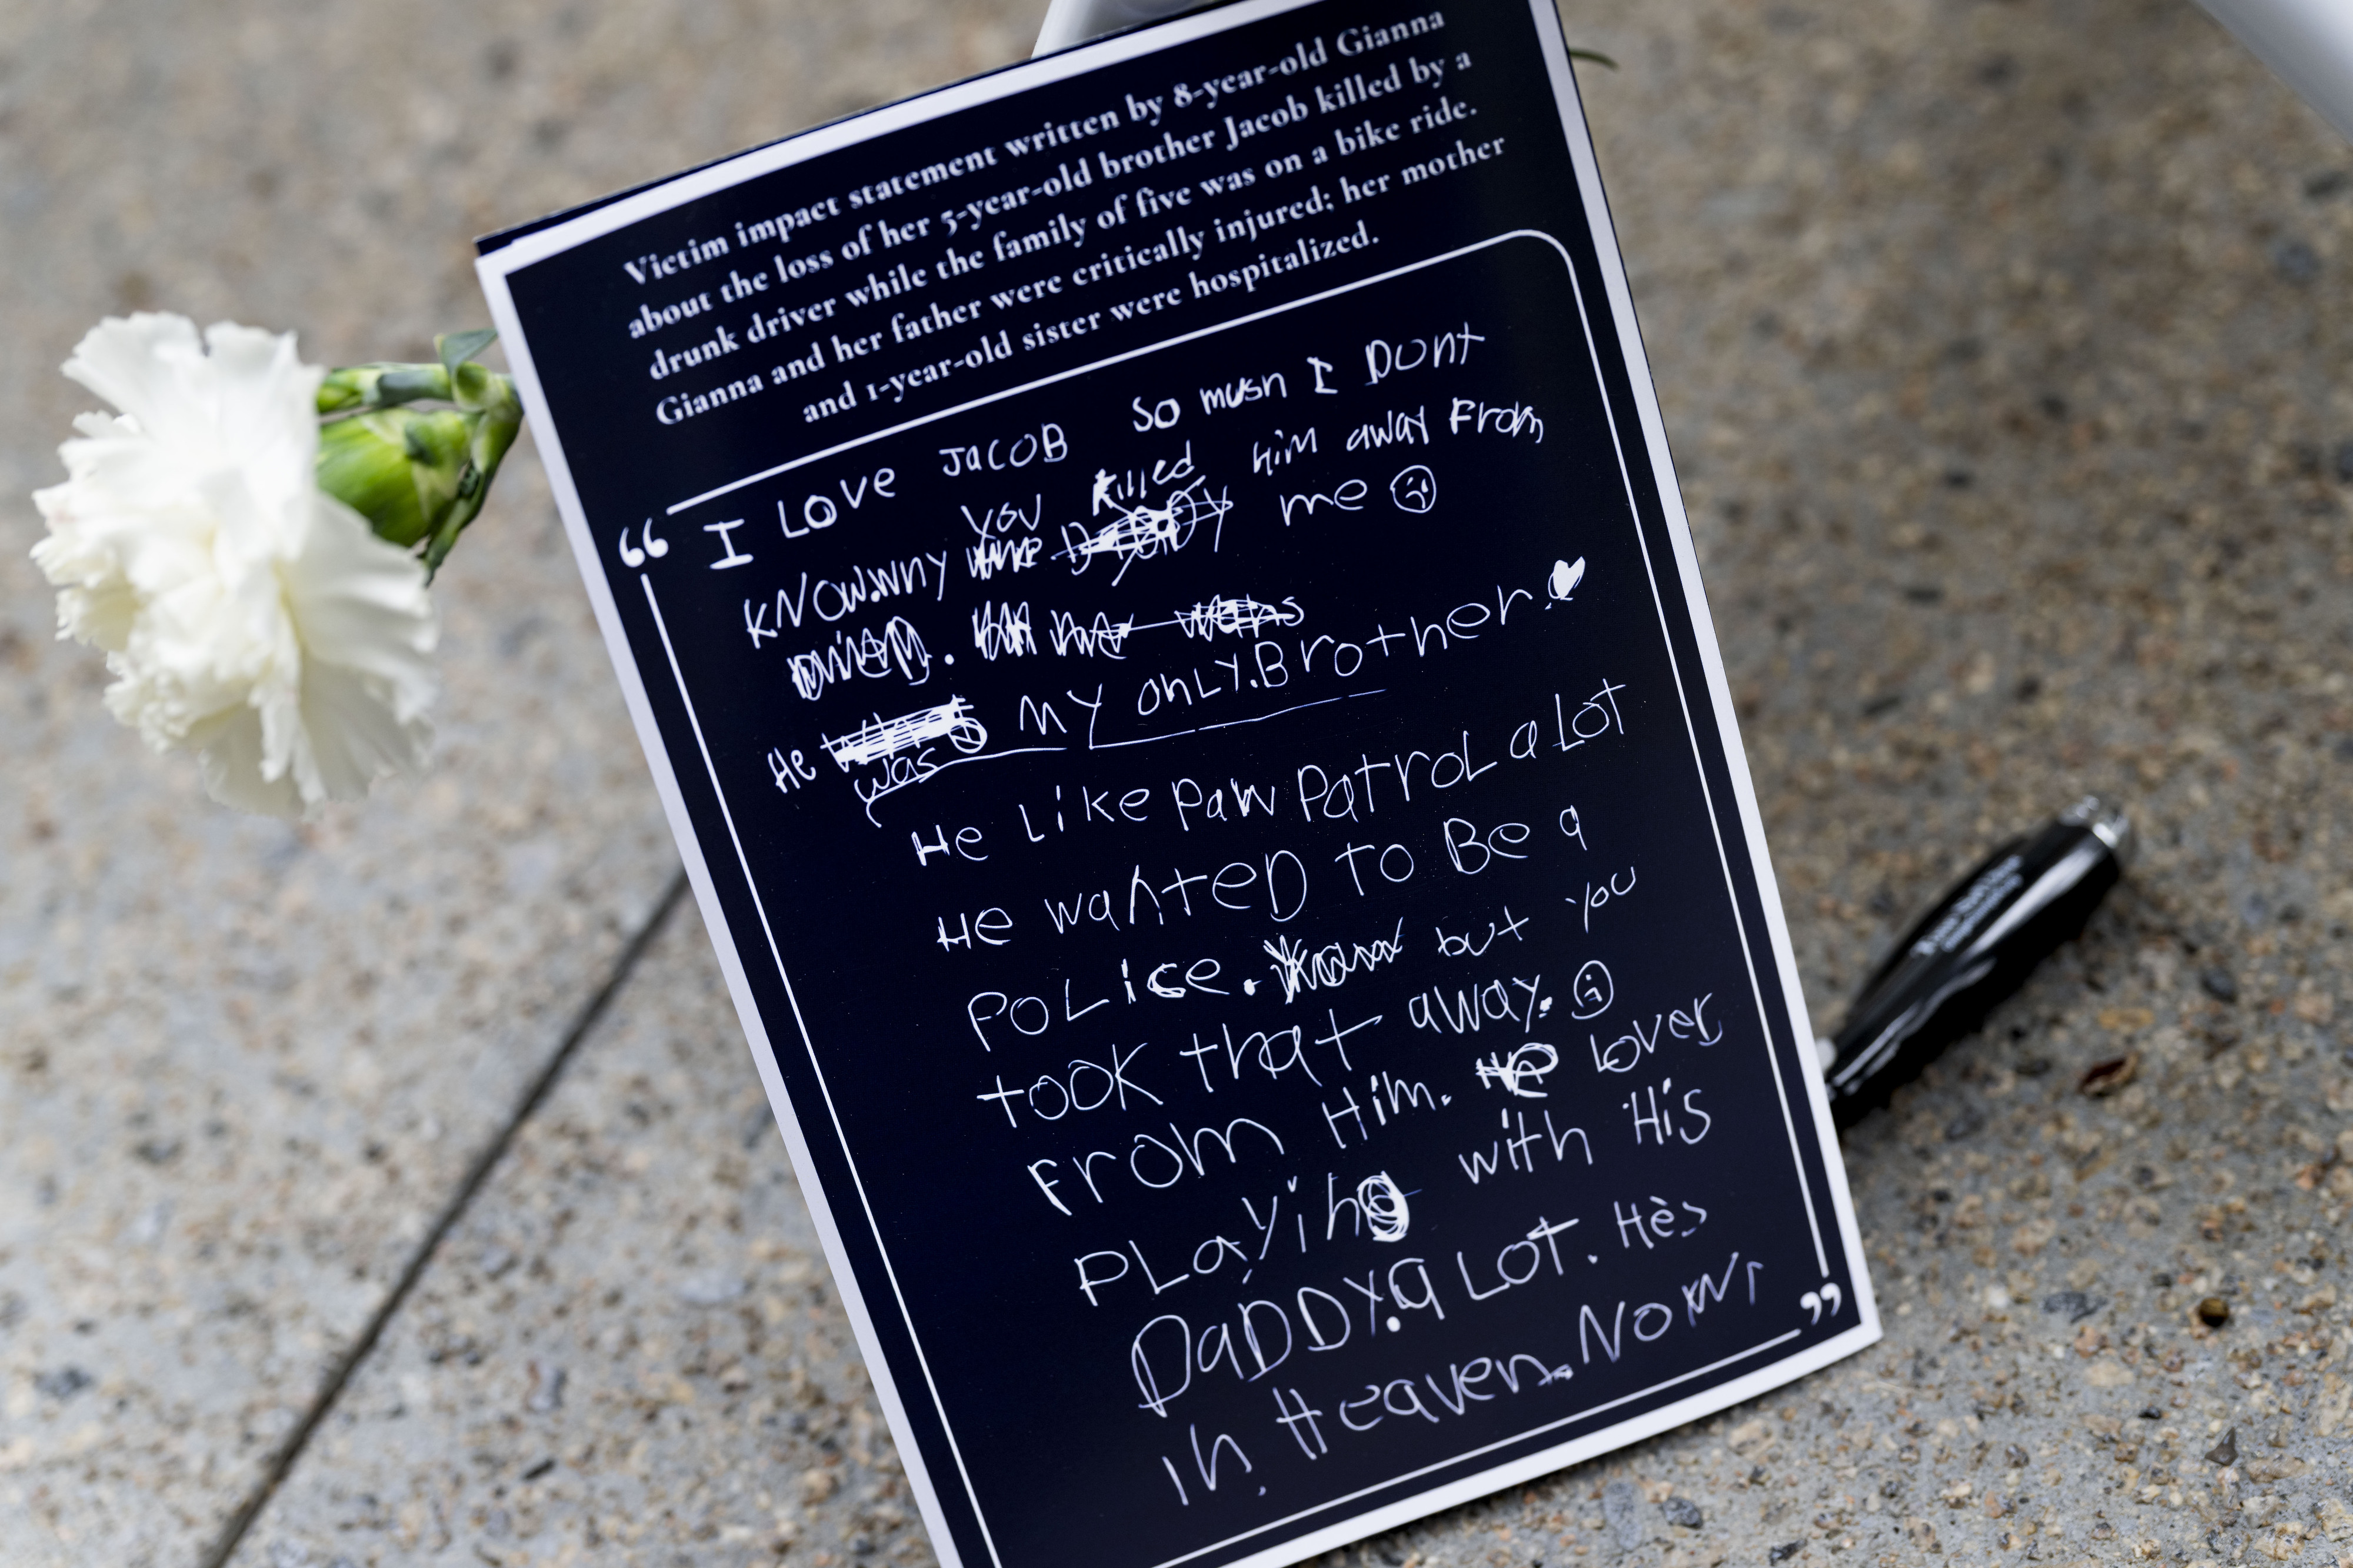 Victim impact statement written by 8-year-old Gianna
about the loss of her 5-year-old brother Jacob killed by a
drunk driver while the family of five was on a bike ride.
Gianna and her father were critically injured; her mother
and 1-year-old sister were hospitalized.
“ I LOVE JACOB So mush I DONT
KNOW.WHY you killed Him away From
me
He was My only.Brother.
He Like Paw PatroL a Lot
He wanteD to Be a
POLice. but you
took that away.
From Him. He Lover
PLaying with His
DaDDy.a Lot. He's
in Heaven. Now. ”